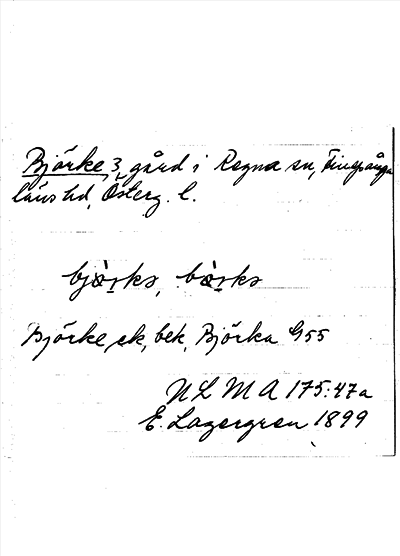 Björke 3, gård i Regna sn, Finspånga
läns hd, Österg. l.
bjö̀rkə, bö̀rkə
Björke, ek, bek, Björka G55
ULMA 175:47a
E. Lagergren 1899